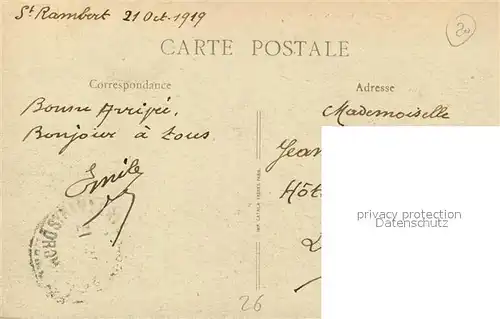 St Rambert 21 Oct. 1919
20
CARTE POSTALE
Correspondance
Adresse
Bonne Arrivée,
Bonjour à tous
Emile
Mademoiselle
Jean
Hôt
privacy protection
IMP. CATALA FRERES PARIS
26